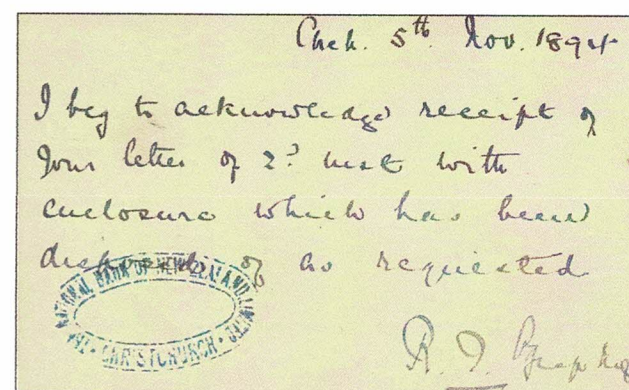 Chch. 5th Nov. 1894
I beg to acknowledge receipt of
your letter of 2d inst with
enclosure which has been
disposed of as requested
THE NATIONAL BANK OF NEW ZEALAND LIMITED
· CHRISTCHURCH ·
R. J.